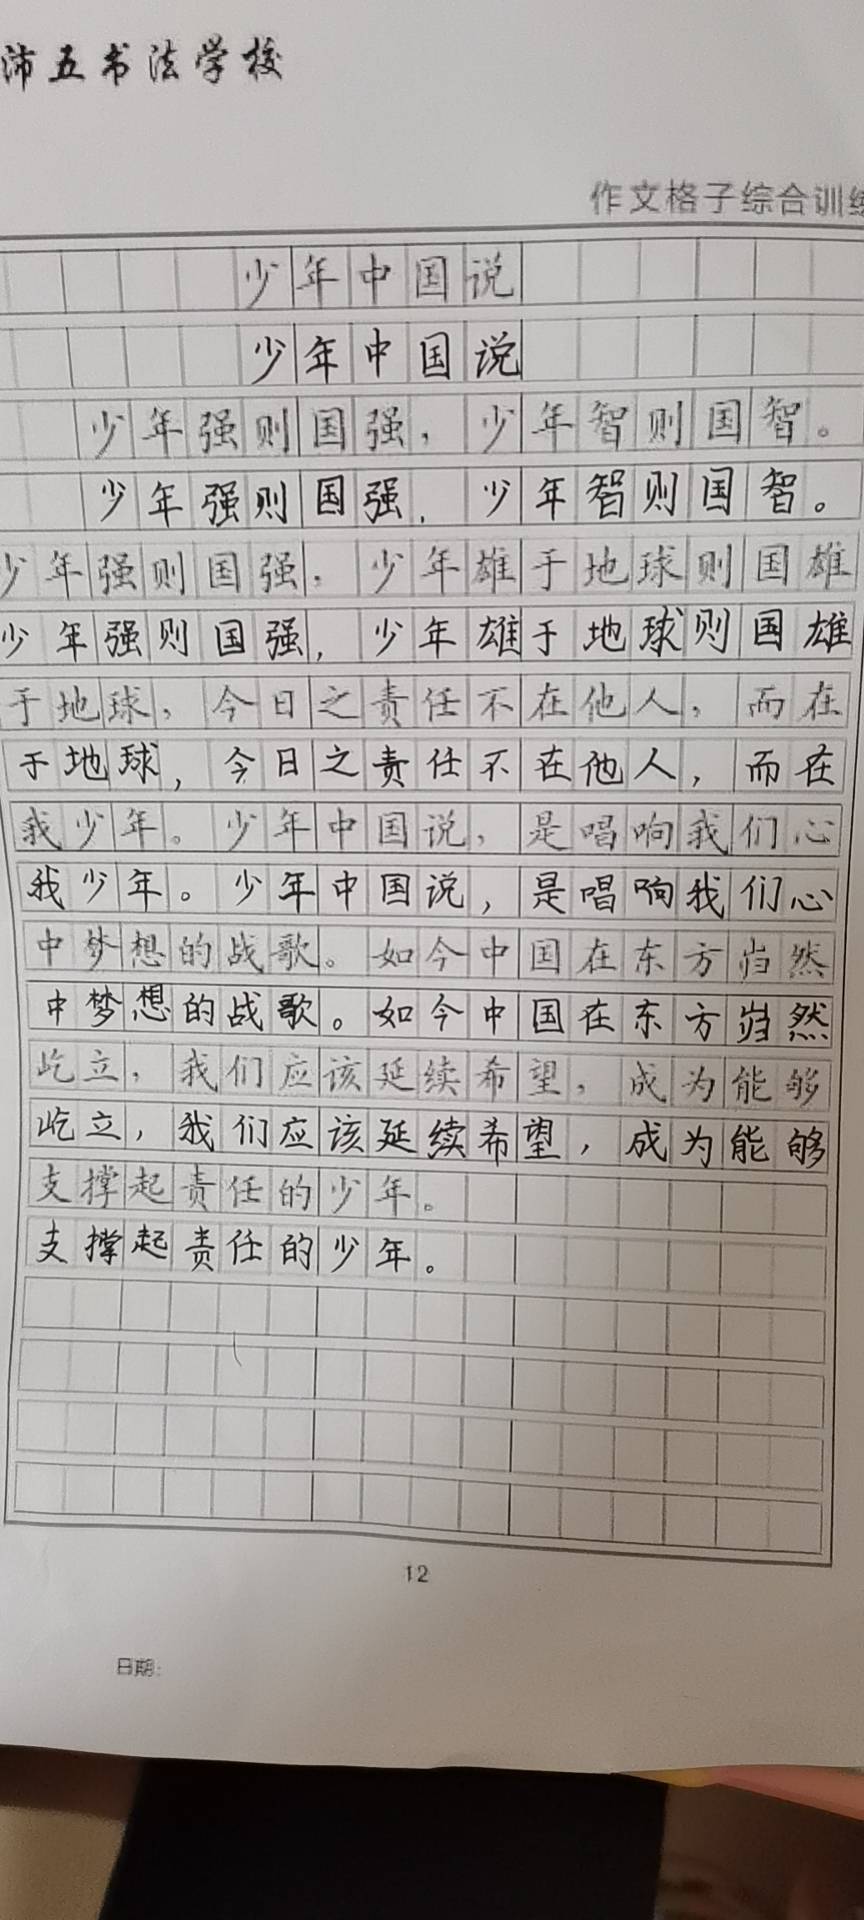 沛五书法学校
作文格子综合训练
少年中国说
少年中国说
少年强则国强，少年智则国智。
少年强则国强，少年智则国智。
少年强则国强，少年雄于地球则国雄
少年强则国强，少年雄于地球则国雄
于地球，今日之责任不在他人，而在
于地球，今日之责任不在他人，而在
我少年。少年中国说，是唱响我们心
我少年。少年中国说，是唱响我们心
中梦想的战歌。如今中国在东方岿然
中梦想的战歌。如今中国在东方岿然
屹立，我们应该延续希望，成为能够
屹立，我们应该延续希望，成为能够
支撑起责任的少年。
支撑起责任的少年。
12
日期: